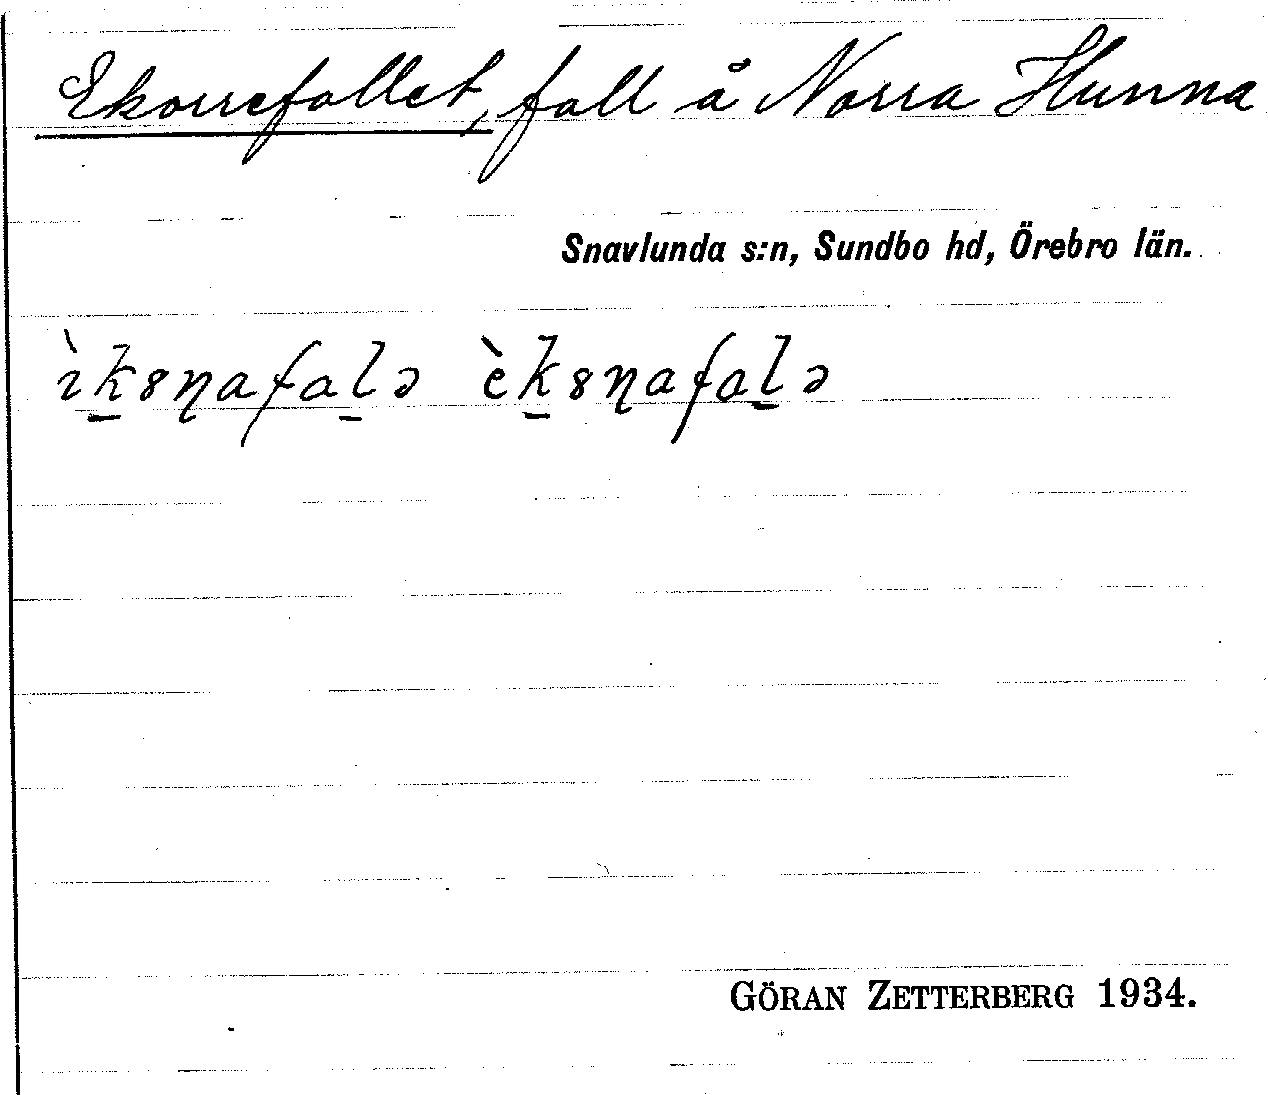 Ekorrefallet, fall å Norra Hunna
Snavlunda s:n, Sundbo hd, Örebro län.
ìk̲sɳafal̲ə èk̲sɳafal̲ə
GÖRAN ZETTERBERG 1934.